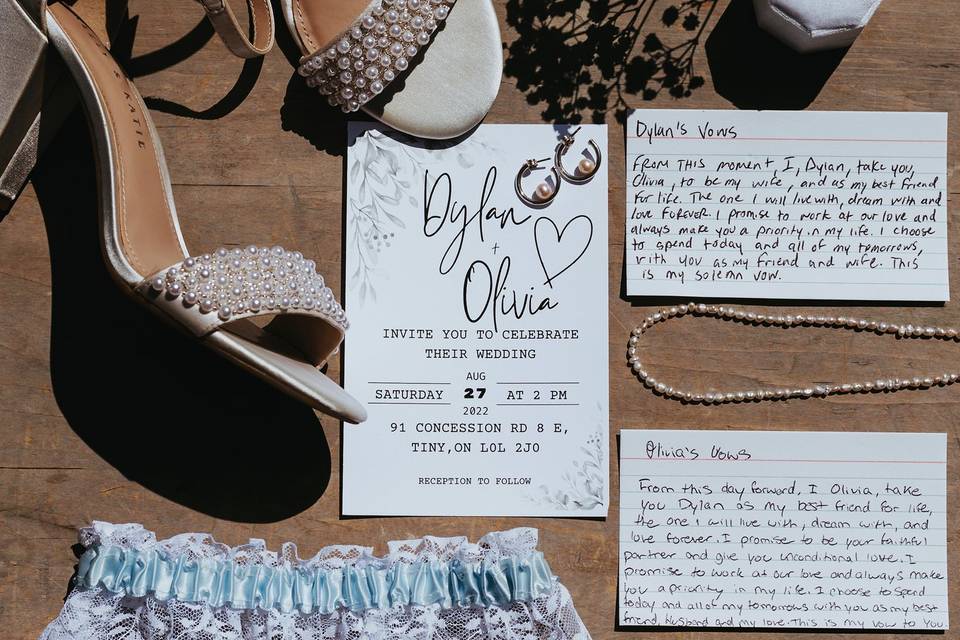 KATIE
Dylan
+
Olivia
INVITE YOU TO CELEBRATE
THEIR WEDDING
AUG
SATURDAY 27 AT 2 PM
2022
91 CONCESSION RD 8 E,
TINY,ON LOL 2J0
RECEPTION TO FOLLOW
Dylan's Vows
FROM THIS moment, I, Dylan, take you,
Olivia, to be my wife, and as my best friend
for life. The one I will live with, dream with and
love forever. I promise to work at our love and
always make you a priority in my life. I choose
to spend today and all of my tomorrows,
with you as my friend and wife. This
is my solemn vow.
Olivia's Vows
From this day forward, I Olivia, take
you Dylan as my best friend for life,
the one I will live with, dream with, and
love forever. I promise to be your faithful
partner and give you unconditional love. I
promise to work at our love and always make
you a priority in my life. I choose to spend
today and all of my tomorrows with you as my best
friend, husband and my love. This is my vow to you